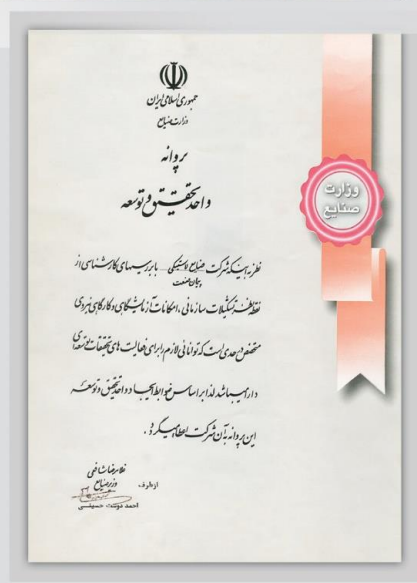 جمهوری اسلامی ایران
وزارت صنایع
پروانه
واحد تحقیق و توسعه
وزارت
صنایع
نظر به اینکه شرکت صنایع لاستیکی با بررسیهای کارشناسی از
نقطه نظر تشکیلات سازمانی، امکانات آزمایشگاهی و کارگاهی نیروی
متخصص در حدی است که توانائی لازم را برای فعالیت های تحقیقات و توسعه‌ای
دارا میباشد لذا بر اساس ضوابط ایجاد واحد تحقیق و توسعه
این پروانه به آن شرکت اعطا میگردد.
غلامرضا شافعی
وزیر صنایع
ازطرف
احمد دوست حسینی